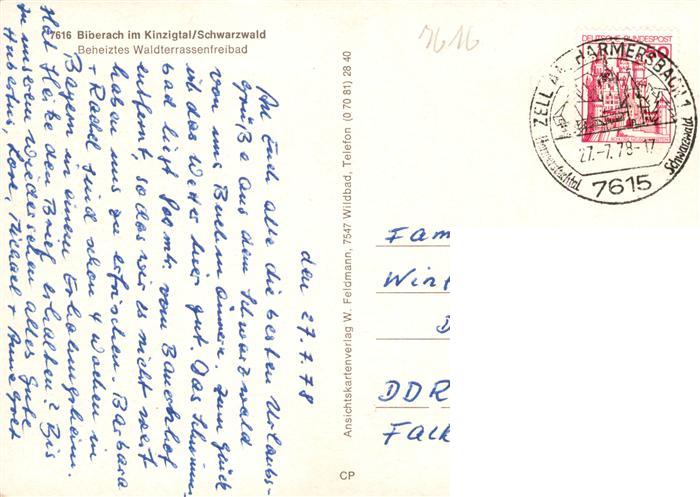 7616 Biberach im Kinzigtal/Schwarzwald
Beheiztes Waldterrassenfreibad
7616
DEUTSCHE BUNDESPOST
ZELL AM HARMERSBACH 1
27.-7.78-17
Harmersbachtal
Schwarzwald
7615
den 27.7.78
An Euch alle die besten Urlaubs-
grüße aus dem Schwarzwald
von uns Zum Glück
ist das Wetter hier gut. Das Schwimm-
bad liegt 800 mtr. vom Bauernhof
entfernt, so das wir es nicht weit
haben uns zu erfrischen. Barbara
+ Rachel sind schon 4 Wochen in
Bayern in einem Erholungsheim.
Hat Heike den Brief erhalten? Bis
zu unseren Wiedersehen alles Gute
Hubertus, Lore, Michael + Annegret
Ansichtskartenverlag W. Feldmann, 7547 Wildbad, Telefon (0 70 81) 28 40
CP
Fam
Wint
D
DDR
Falk